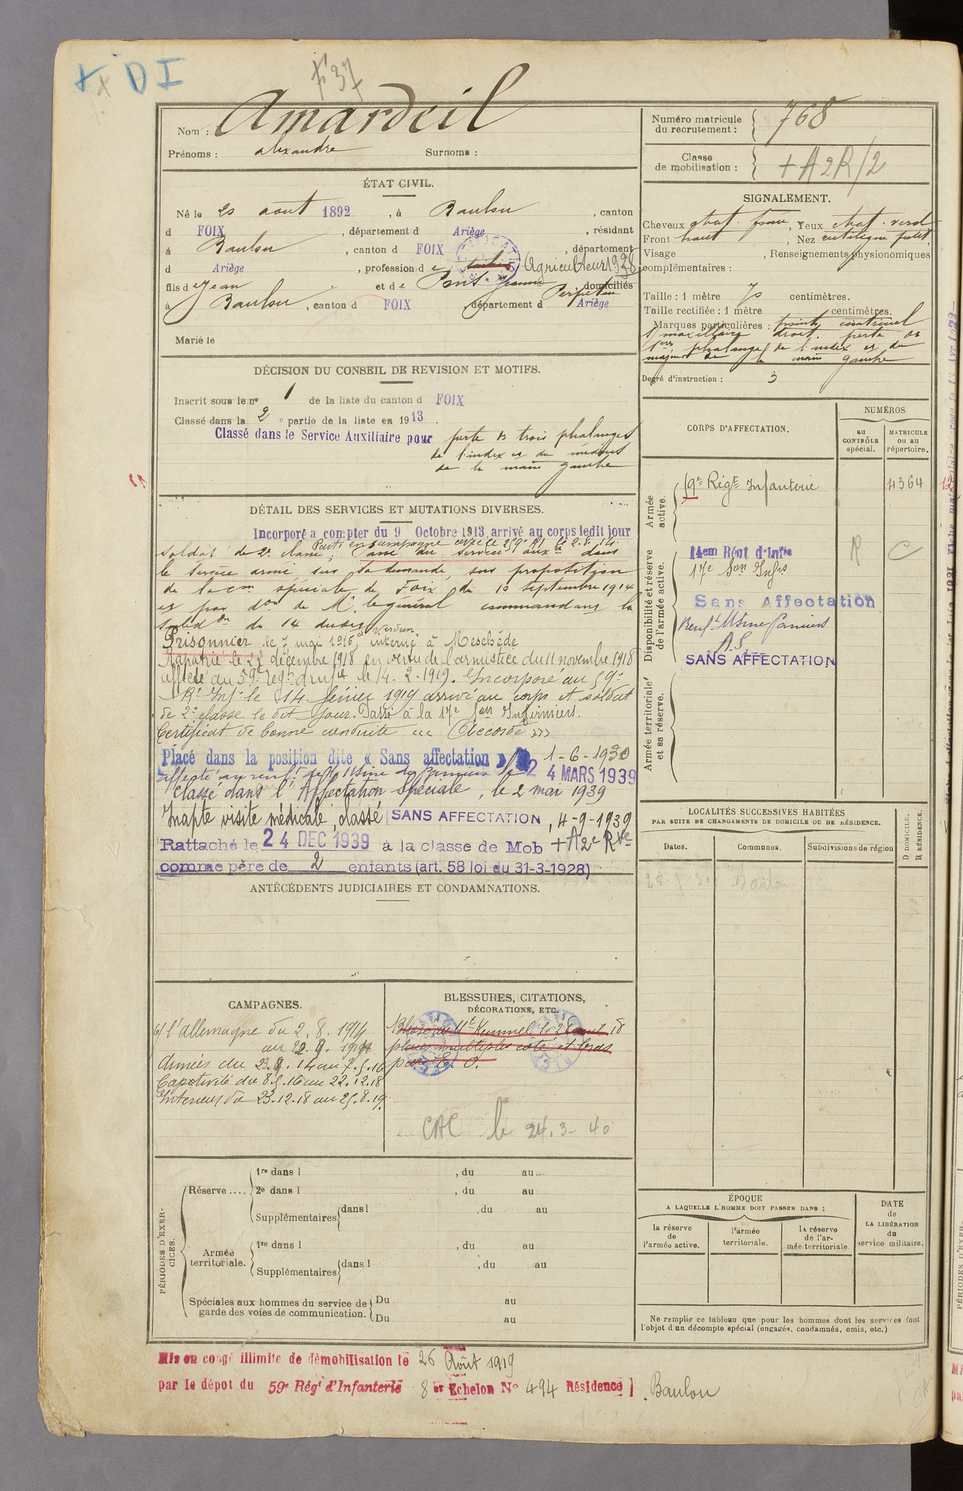 DI
F 37
Nom : Amardeil
Prénoms : alexandre Surnoms :
Numéro matricule du recrutement : 768
Classe de mobilisation : + A 2R/2
ÉTAT CIVIL.
Né le 20 aout 1892, à Baulou, canton
d FOIX, département d Ariège, résidant
à Baulou, canton d FOIX, département
d Ariège, profession d Agriculteur
fils d e Jean et d e Pont Jeanne Perpétue, domiciliés
à Baulou, canton d FOIX, département d Ariège
Marié le
DÉCISION DU CONSEIL DE REVISION ET MOTIFS.
Inscrit sous le nº 1 de la liste du canton d FOIX
Classé dans la 2e partie de la liste en 1913.
Classé dans le Service Auxiliaire pour perte de trois phalanges
de l'index et du médius
de la main gauche
DÉTAIL DES SERVICES ET MUTATIONS DIVERSES.
Incorporé à compter du 9 Octobre 1913, arrivé au corps ledit jour
soldat de 2e classe. Classé du service auxre dans
le service armé sur sa demande, sur proposition
de la con spéciale de Foix du 10 septembre 1914
et par don de Mr le général commandant la
subdon du 14 dudit
Prisonnier le 7 mai 1916 à Verdun, interné à Meschède
Rapatrié le 22 décembre 1918 en vertu de l'armistice du 11 novembre 1918
affecté au 59e Régt d'Infie le 14-2-1919. Incorporé au 59e
Rt Inf. le 14 février 1919 arrivé au corps et soldat
de 2e classe le dit jour. Passé à la 17e Son Infirmiers.
Certificat de bonne conduite "Accordé"
Placé dans la position dite « Sans affectation » 1-6-1930
24 MARS 1939
Classé dans l'Affectation Spéciale, le 2 mai 1939
Inapte visite médicale, classé SANS AFFECTATION, 4-9-1939
Rattaché le 24 DEC 1939 à la classe de Mob + A 2e Rve
comme père de 2 enfants (art. 58 loi du 31-3-1928)
ANTÉCÉDENTS JUDICIAIRES ET CONDAMNATIONS.
CAMPAGNES.
c/ l'Allemagne du 2.8.1914
au
Armées du
Captivité du 8.5.16 au 22.12.18
Intérieur du 23.12.18 au 25.8.19
BLESSURES, CITATIONS, DÉCORATIONS, ETC.
Blessé au Mt Kemmel le 28 18
plaies multiples côté et bras
par E. O.
CAC le 24.3-40
PÉRIODES D'EXERCICES.
Réserve ....
1re dans l , du au
2e dans l , du au
Supplémentaires dans l , du au
Armée territoriale.
1re dans l , du au
Supplémentaires dans l , du au
Spéciales aux hommes du service de garde des voies de communication. Du au
Du au
SIGNALEMENT.
Cheveux chat. foncé, Yeux chat. verd.
Front haut, Nez rectiligne petit
Visage , Renseignements physionomiques
complémentaires :
Taille : 1 mètre 70 centimètres.
Taille rectifiée : 1 mètre centimètres.
Marques particulières : cicatriciel
maxillaire droit. perte de
phalanges de l'index et du
de la main gauche
Degré d'instruction : 3
CORPS D'AFFECTATION.
NUMÉROS
au CONTRÔLE spécial.
MATRICULE ou au répertoire.
Armée active.
59e Régt Infanterie 4364
Disponibilité et réserve de l'armée active.
14em Rént d'Infie
17e Son Infrs
R C
Sans Affectation
Renft Usine Pamiers
A.S.
SANS AFFECTATION
Armée territoriale et sa réserve.
LOCALITÉS SUCCESSIVES HABITÉES
PAR SUITE DE CHANGEMENTS DE DOMICILE OU DE RÉSIDENCE.
Dates. Communes. Subdivisions de région
D DOMICILE. R RÉSIDENCE.
Baulou
ÉPOQUE
A LAQUELLE L'HOMME DOIT PASSER DANS :
la réserve de l'armée active.
l'armée territoriale.
la réserve de l'armée territoriale
DATE de LA LIBÉRATION du service militaire.
Ne remplir ce tableau que pour les hommes dont les services font
l'objet d'un décompte spécial (engagés, condamnés, omis, etc.)
Mis en congé illimité de démobilisation le 26 Août 1919
par le dépôt du 59e Régt d'Infanterie 8e Echelon No 494 Résidence Baulou